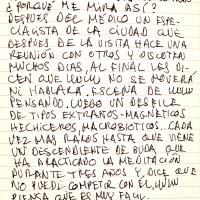 ¿PORQUÉ ME MIRA ASÍ?
DESPUES DEL MEDICO UN ESPE-
CIALISTA DE LA CIUDAD QUE
DESPUES DE LA VISITA HACE UNA
REUNIÓN CON OTROS Y DISCUTEN
MUCHOS DIAS, AL FINAL LES DI-
CEN QUE NO SE MOVERÁ
NI HABLARÁ. ESCENA DE
PENSANDO. LUEGO UN DESFILE
DE TIPOS EXTRAÑOS-MAGNETICOS
HECHICEROS, MACROBIOTICOS...CADA
VEZ MAS RAROS HASTA QUE VIENE
UN DESCENDIENTE DE BUDA QUE
HA PRACTICADO LA MEDITACIÓN
DURANTE TRES AÑOS Y DICE QUE
NO PUEDE COMPETIR CON EL
PIENSA QUE ES MUY FACIL